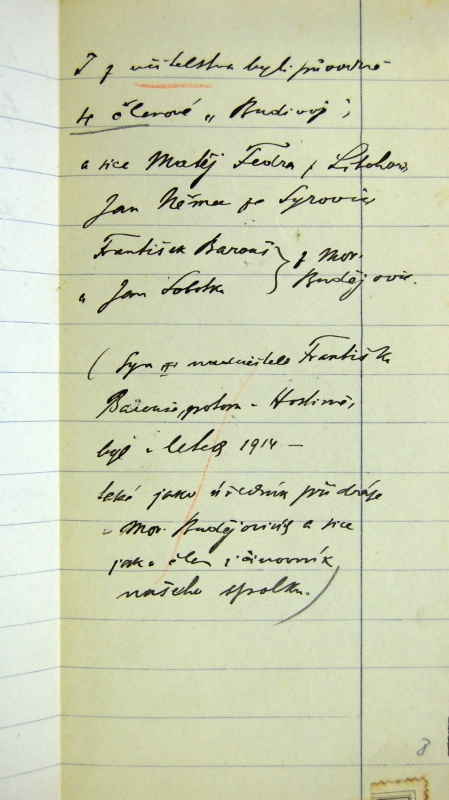 I z učitelstva byli původně
4 členové „Budivoj";
a sice Matěj Fedra z Litohoře,
Jan Němec ze Syrovic
František Barouš } z Mor.
a Jan Sobotka } Budějovic.
(Syn nadučitele Františka
potom v Hostimi,
byl v letech 1914 –
také jako úředník při dráze
v Mor. Budějovicích a sice
jako člen i činovník
našeho spolku.)
8